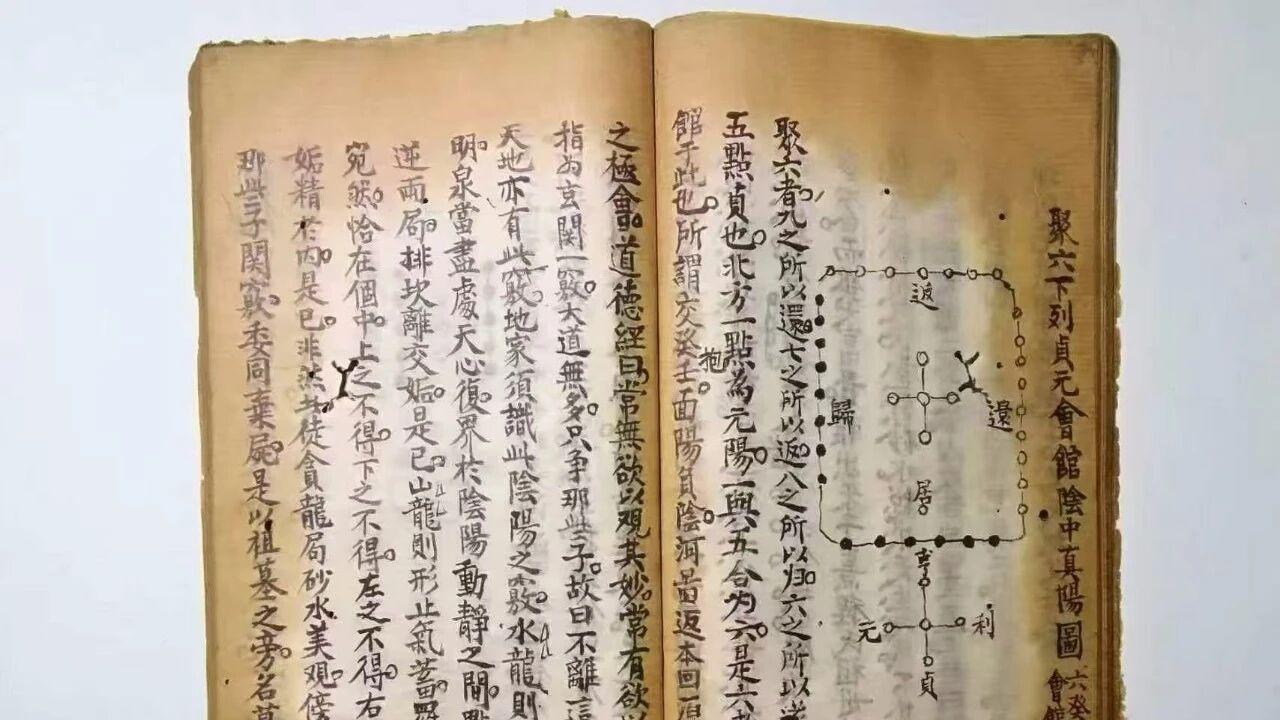 聚六下列貞元會館陰中真陽圖
六癸
會館
返
還
歸
居
亨
元
利
貞
聚六者九之所以還七之所以返八之所以归六之所以
五點貞也北方一點為元陽一與五合为六是六
館于此也所謂交癸壬面陽負陰洞
抱
返本回
之極會道德經曰常無欲以观其妙常有欲以
指为玄関一竅大道無多只争那些子故曰不離這
天地亦有此竅地家須識此陰陽之竅水龍則
明泉當盡處天心復界於陰陽動静之間
逆両局排坎離交姤是已山龍則形止氣蓄
宛然恰在個中上之不得下之不得左之不得右
姤精於丙是已非然此徒貪龍局砂水美观傍
那些子関竅委同棄屍是以祖墓之旁名